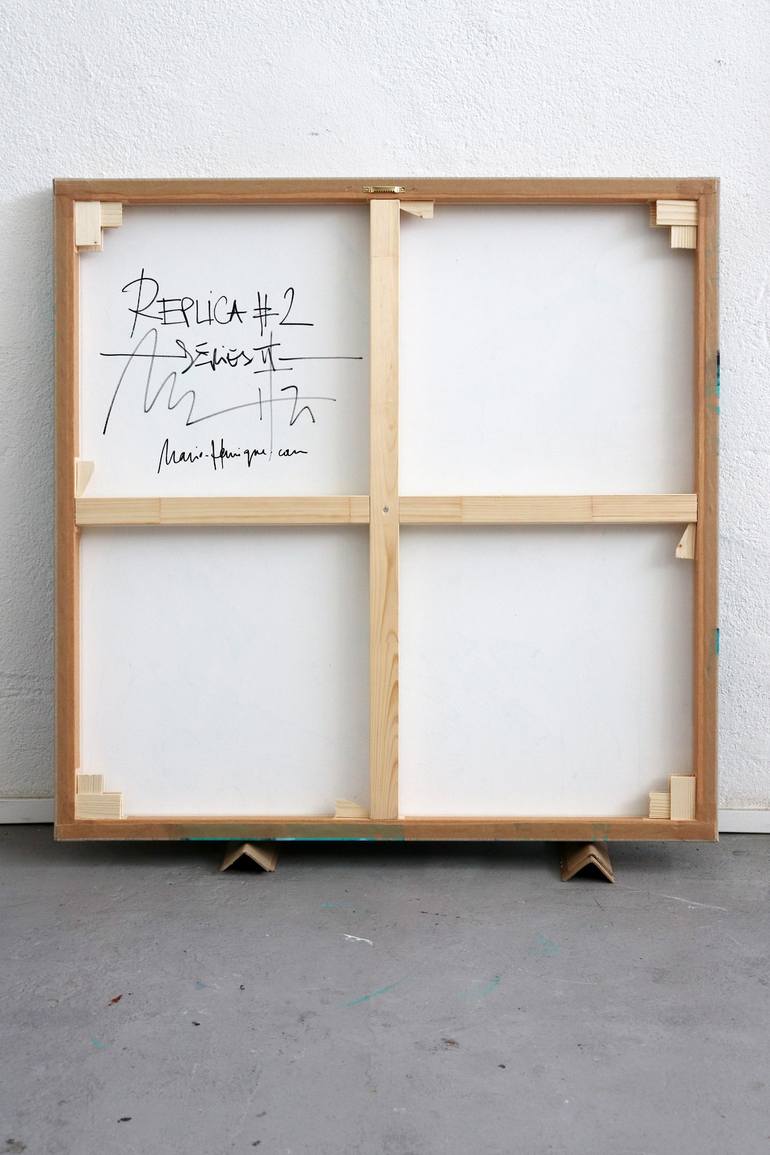 REPLICA #2
SÉRIES II
Mario-Henrique.com